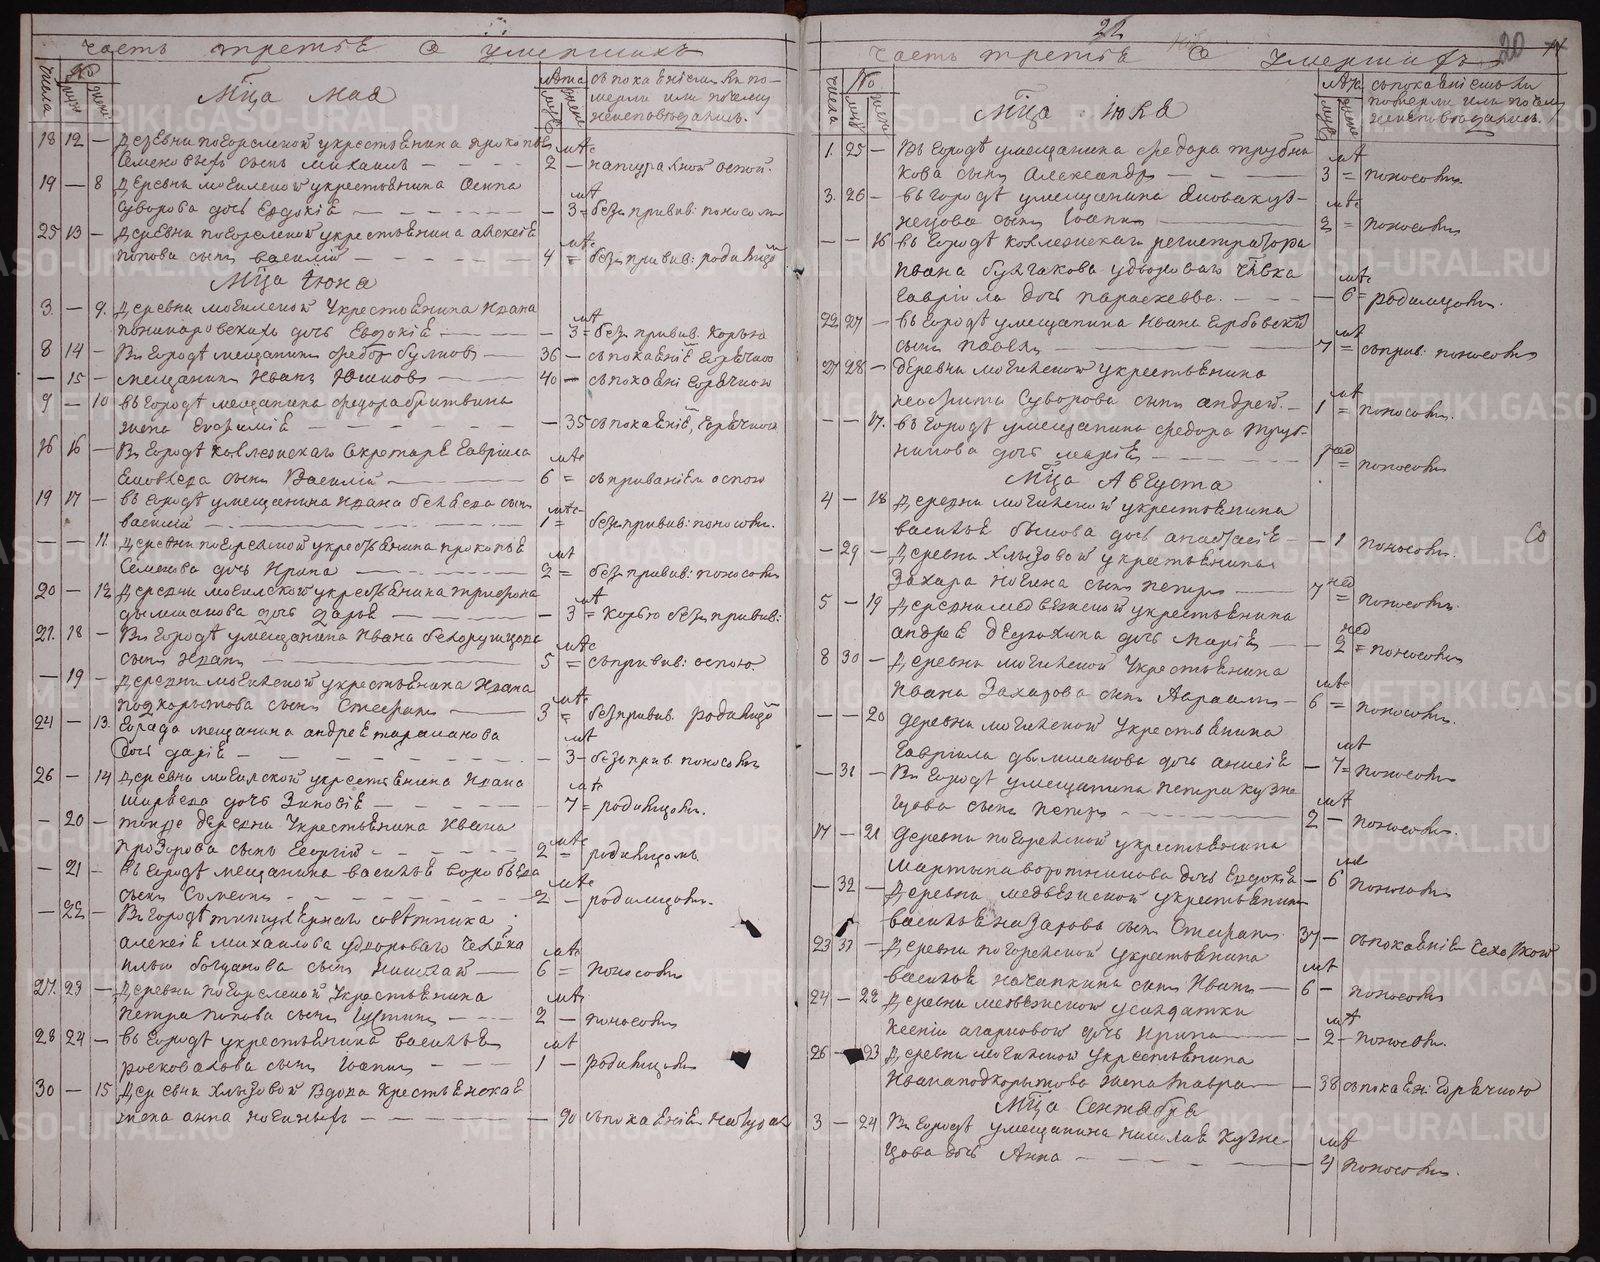 часть третья о умершихъ
числа
№
муж
женс
Мца мая
лѣта
муж
женс
съ покаяніемъ ли по-
мерли или почему
неисповѣданы.
18 12 — деревни погорелской у крестьянина прокопья
Семенова сынъ михаилъ 2 мѣс — натуралной оспой.
19 — 8 деревни могилской у крестьянина Осипа
Суворова дочь Евдокія — 3 мѣ = безъ привив: поносомъ
25 13 — деревни погорелской у крестьянина алексія
попова сынъ василій 4 мѣс = безъ привив: родимцо
Мца Іюня
3. — 9. деревни могилской у крестьянина Ивана
дочь Евдокія — 3 мѣ = безъ привив. Корью
8 14 — Въ городѣ мещанинъ федоръ 36 — съ покаяніѣ горячкою
— 15 — мещанинъ Иванъ Юшковъ 40 — съ покаяні горячкою
9 — 10 въ городѣ мещанина федора бритвина
жена Евфимія — 35 съ покаяніѣ, горячкою
16 16 — Въ городѣ коллежскаго Секретаря Гавріила
сынъ Василій 6 мѣс = съ привив оспою
19 17 — въ городѣ у мещанина Ивана беляева сынъ
василій 1 мѣс = безъ привив: поносомъ.
— — 11. деревни погорелской у крестьянина прокопья
Семенова дочь Ирина 2 мѣ = безъ привив: поносомъ
20 — 12 деревни могилской у крестьянина трифона
дылшакова дочь дарья — 3 мѣ = Корью безъ привив:
21. 18 — Въ городѣ у мещанина Ивана белоручцова
сынъ Иванъ 5 мѣс = съ привив: оспою
— 19 — деревни могилской у крестьянина Ивана
подкорытова сынъ Стефанъ 3 мѣс = безъ привив. родимцо
24 — 13. Города мещанина андрея тараканова
дочь дарія 3 мѣ — безъ прив поносомъ
26 — 14 деревни могилской у крестьянина Ивана
ширяева дочь Зиновія — 7 мѣс = родимцомъ.
— 20 — тояже деревни у крестьянина Ивана
прозорова сынъ Георгій 2 мѣс = родимцомъ
— 21 — въ городѣ мещанина василья воробьева
сынъ Симеонъ 2 мѣс — родимцомъ.
— 22 — Въ городѣ титулярнаго совѣтника
алексія михаилова у двороваго человѣка
ильи богданова сынъ николай 6 мѣс = поносомъ
27. 23 — деревни погорелской у крестьянина
петра попова сынъ Іустинъ 2 мѣс — поносомъ
28 24 — въ городѣ у крестьянина василья
сынъ Іоаннъ 1 мѣ — родимцомъ
30 — 15 деревни Хлызовой вдова Крестьянская
жена анна ногиныхъ — 90 съ покаяніемъ натурал
22
20
часть третья о умершихъ
числа
№
муж
женс
Мца іюля
лѣта
муж
женс
съ покаяніемъ ли
померли или почему
неисповѣданы.
1. 25 — Въ городѣ у мещанина федора трубни
кова сынъ Александръ 3 мѣ = поносомъ
3. 26 — въ городѣ у мещанина якова куз-
нецова сынъ Іоаннъ 2 мѣс = поносомъ
— — 16 въ городѣ коллежскаго регистратора
Ивана булгакова у двороваго члвка
гавріила дочь параскева. — 6 мѣс = родимцомъ.
22 27 — въ городѣ у мещанина Ивана
сынъ павелъ 7 мѣ = съ прив: поносомъ
27 28 — деревни могилской у крестьянина
неофита Суворова сынъ андрей. 1 мѣ = поносомъ.
— — 17. въ городѣ у мещанина федора труб-
никова дочь марія 1 год = поносомъ
Мца Августа
4 — 18 деревни могилской у крестьянина
василья быкова дочь анастасія — 1 поносомъ.
— 29 — деревни Хлызовой у крестьянина
Захара ногина сынъ петръ 7 нед = поносомъ.
5 — 19 деревни медвѣжской у крестьянина
андрея дочь марія — 2 нед = поносомъ
8 30 — деревни могилской у крестьянина
Ивана Захарова сынъ Авраамъ 6 мѣс = поносомъ.
— — 20 деревни могилской у крестьянина
Гавріила дылшакова дочь анисія — 7 мѣ = поносомъ
— 31 — Въ городѣ у мещанина петра кузне
цова сынъ петръ 2 мѣ — поносомъ.
17 — 21 деревни погорелской у крестьянина
мартына воротникова дочь Евдокія — 6 мѣ поносомъ
— 32 — деревни медвѣжской у крестьянин
василья назарова сынъ Стефанъ. 37 — съ покаяніемъ чахоткою
23 33 — деревни погорелской у крестьянина
василья сынъ Иванъ 6 мѣ — поносомъ
24 — 22 деревни медвѣжской у салдатки
Ксеніи агарковой дочь Ирина — 2 мѣ — поносомъ.
26 — 23 деревни могилской у крестьянина
Ивана подкорытова жена мавра — 38 съ покаяні горячкою
Мца Сентября
3 — 24 Въ городѣ у мещанина николая кузне-
цова дочь Анна — 4 мѣ поносомъ.
METRIKI.GASO-URAL.RU